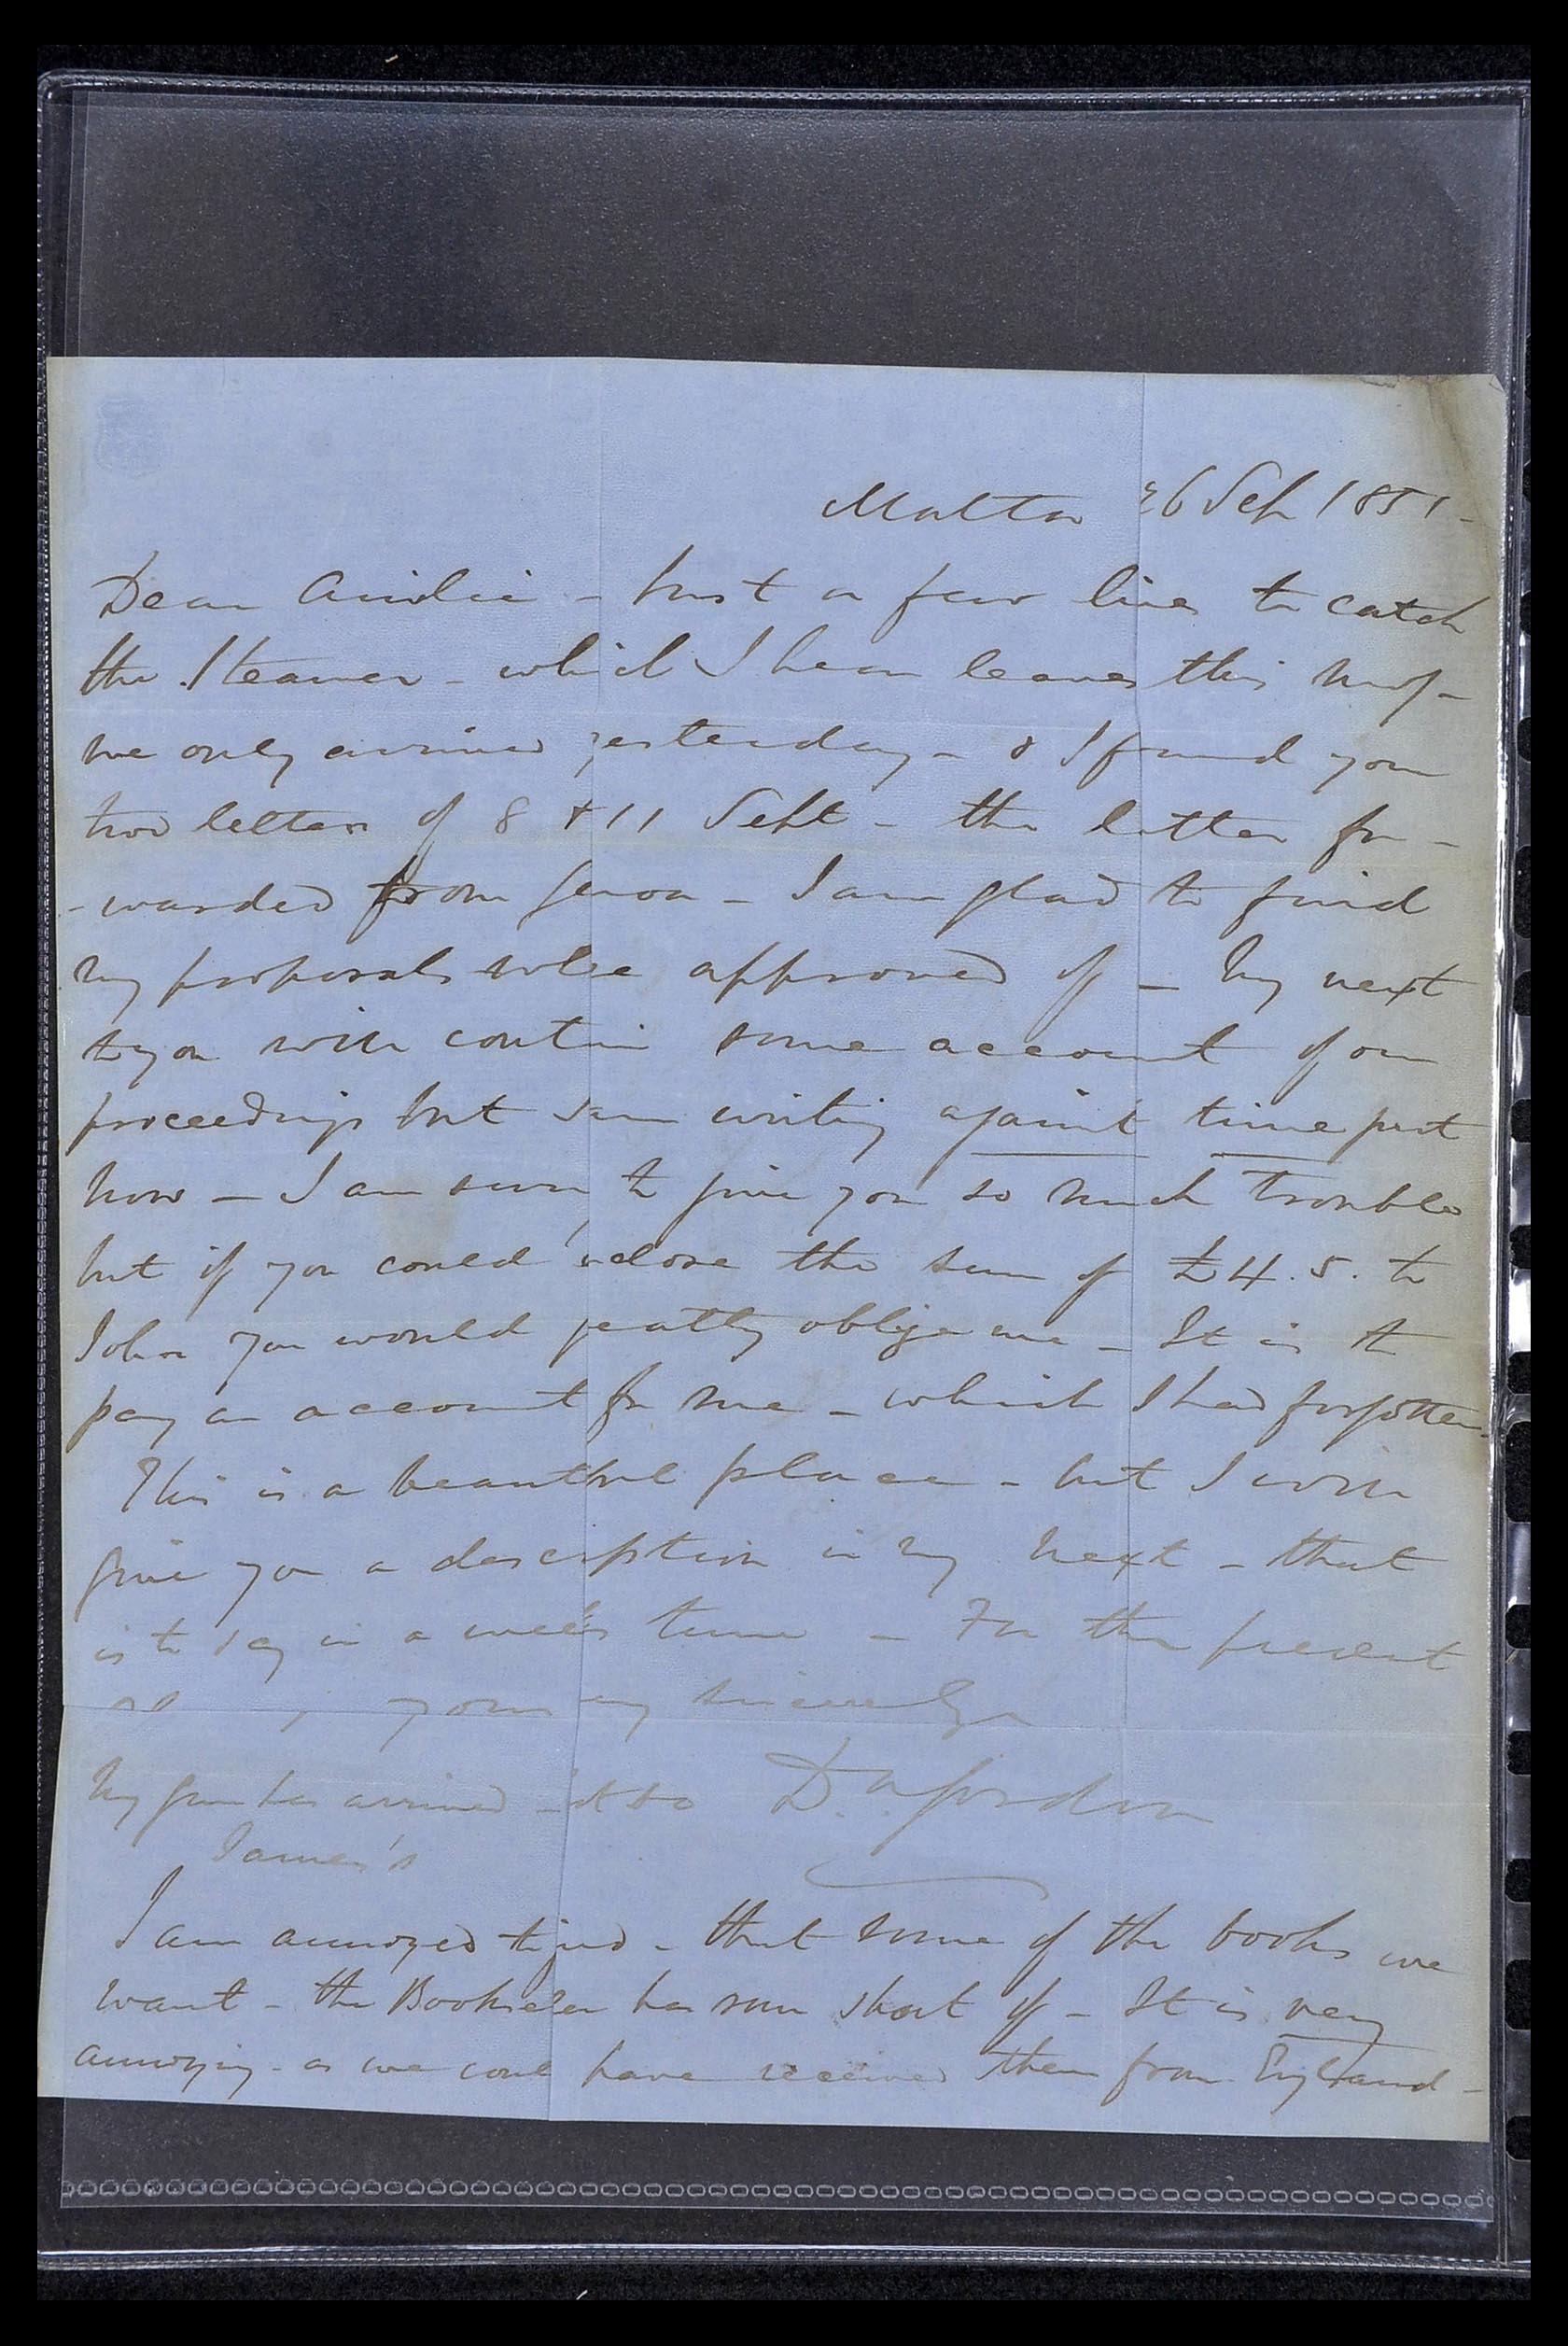 Malta 26 Sep 1851 -
Dear Ainslie - Just a few lines to catch
the Steamer - which I hear leaves this
we only arrived yesterday - & I found your
two letters of 8 & 11 Sept - the latter for -
- warded from Genoa - I am glad to find
my proposals were approved of - My next
to you will contain some account of our
proceedings but I am writing against time just
now - I am sorry to give you so much trouble
but if you could inclose the sum of £4.5. to
John you would greatly oblige me - It is to
pay an account for me - which I had forgotten.
This is a beautiful place - but I will
give you a description in my next - that
is to say in a week's time - For the present
yours very sincerely
My gun has arrived - also D. Gordon
James's
I am annoyed to find - that some of the books we
want - the Bookseller has run short of - It is very
annoying - as we could have received them from England -